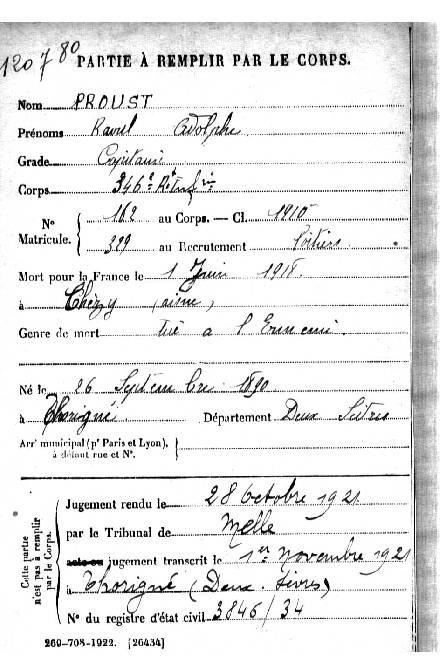 120780
PARTIE À REMPLIR PAR LE CORPS.
Nom PROUST
Prénoms Raoul Adolphe
Grade Capitaine
Corps 346e Rt Infie
No Matricule. 162 au Corps. — Cl. 1910
329 au Recrutement Poitiers
Mort pour la France le 1 Juin 1918.
à Chézy (aisne)
Genre de mort tué a l'Ennemi.
Né le 26 Septembre 1890
à Thorigné Département Deux Sèvres
Arrt municipal (pr Paris et Lyon), à défaut rue et No.
Cette partie n'est pas à remplir par le Corps.
Jugement rendu le 28 Octobre 1921
par le Tribunal de Melle
acte ou jugement transcrit le 1er Novembre 1921
à Thorigné (Deux. Sèvres)
No du registre d'état civil 3846/34
269-708-1922. [26434]